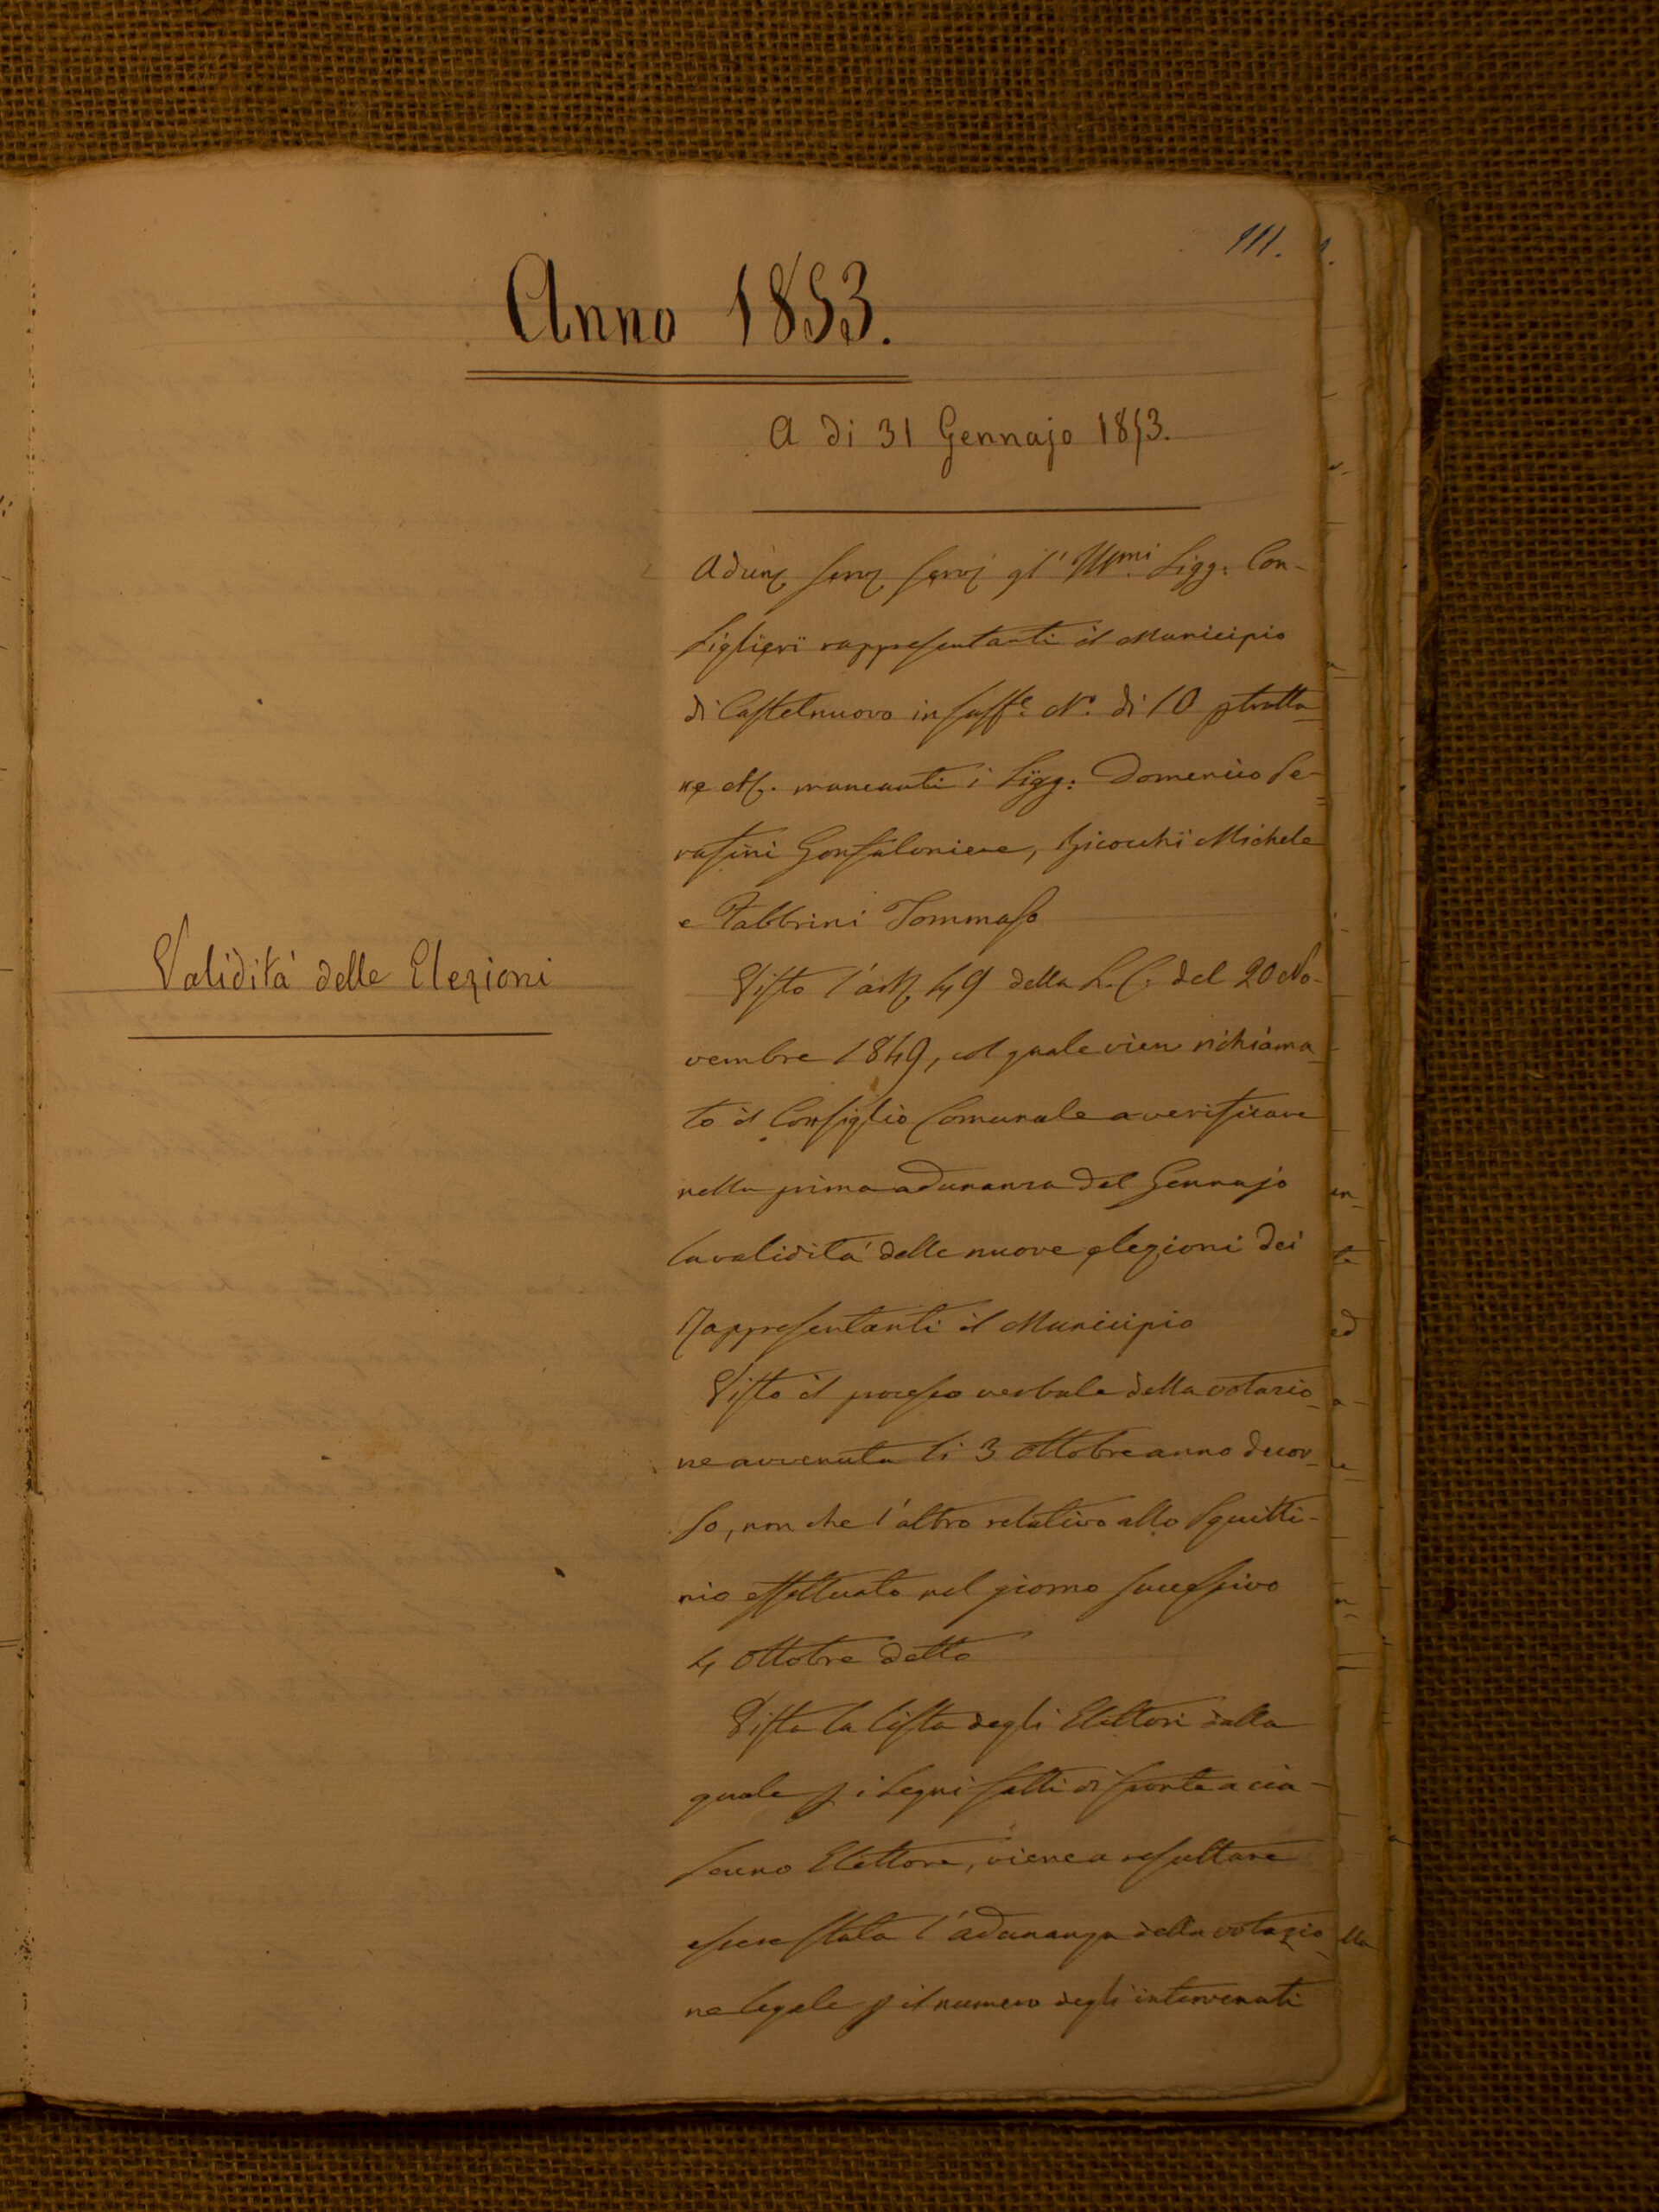 111.
Anno 1853.
A di 31 Gennajo 1853.
Adun: serv: serv: gl' Ill.mi Sigg: Con-
siglieri rappresentanti il Municipio
di Castelnuovo in suff.e N.o di 10
mancanti i Sigg: Domenico Se-
rafini Gonfaloniere, Bicocchi Michele
e Fabbrini Tommaso
Validità delle Elezioni
Visto l'art. 49 della L. C. del 20 No-
vembre 1849, col quale vien richiama-
to il Consiglio Comunale a verificare
nella prima adunanza del Gennajo
la validità delle nuove elezioni dei
Rappresentanti il Municipio
Visto il processo verbale della votazio-
ne avvenuta li 3 Ottobre anno decor-
so, non che l'altro relativo allo Squitti-
nio effettuato nel giorno successivo
4 Ottobre detto
Vista la lista degli Elettori dalla
quale p i segni fatti di fronte a cia-
scuno Elettore, viene a resultare
essere stata l'adunanza della votazio-
ne legale p il numero degli intervenuti